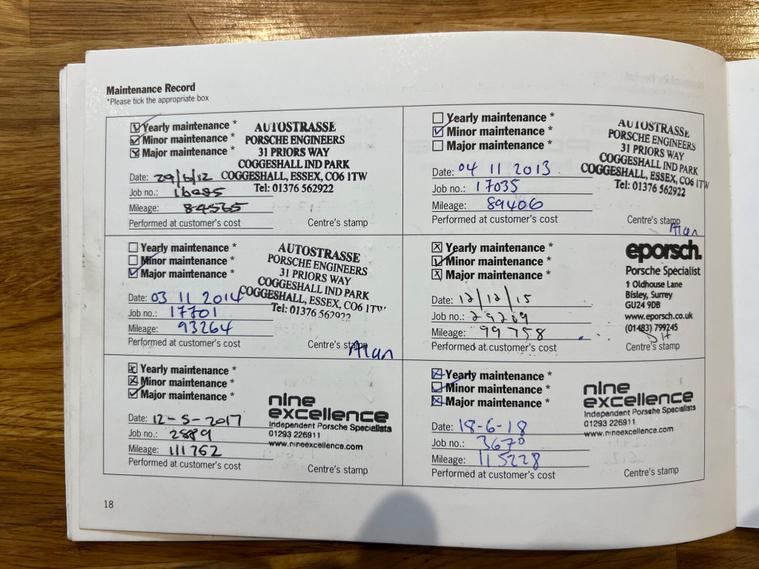 Maintenance Record
*Please tick the appropriate box
Yearly maintenance *
Minor maintenance *
Major maintenance *
Date:
Job no.:
Mileage: 84565
Performed at customer's cost
AUTOSTRASSE
PORSCHE ENGINEERS
31 PRIORS WAY
COGGESHALL IND PARK
COGGESHALL, ESSEX, CO6 1TW
Tel: 01376 562922
Centre's stamp
Yearly maintenance *
Minor maintenance *
Major maintenance *
Date: 04 11 2013
Job no.: 17035
Mileage: 89406
Performed at customer's cost
AUTOSTRASSE
PORSCHE ENGINEERS
31 PRIORS WAY
COGGESHALL IND PARK
COGGESHALL, ESSEX, CO6 1TW
Tel: 01376 562922
Centre's stamp
Alan
Yearly maintenance *
Minor maintenance *
Major maintenance *
Date: 03 11 2014
Job no.: 17701
Mileage: 93264
Performed at customer's cost
AUTOSTRASSE
PORSCHE ENGINEERS
31 PRIORS WAY
COGGESHALL IND PARK
COGGESHALL, ESSEX, CO6 1TW
Tel: 01376 562922
Centre's stamp
Alan
Yearly maintenance *
Minor maintenance *
Major maintenance *
Date: 12/12/15
Job no.: 29269
Mileage: 99758
Performed at customer's cost
eporsch.
Porsche Specialist
1 Oldhouse Lane
Bisley, Surrey
GU24 9DB
www.eporsch.co.uk
(01483) 799245
Centre's stamp
Yearly maintenance *
Minor maintenance *
Major maintenance *
Date: 12-5-2017
Job no.: 2889
Mileage: 111762
Performed at customer's cost
nine
excellence
Independent Porsche Specialists
01293 226911
www.nineexcellence.com
Centre's stamp
Yearly maintenance *
Minor maintenance *
Major maintenance *
Date: 18-6-18
Job no.: 3670
Mileage: 115228
Performed at customer's cost
nine
excellence
Independent Porsche Specialists
01293 226911
www.nineexcellence.com
Centre's stamp
18